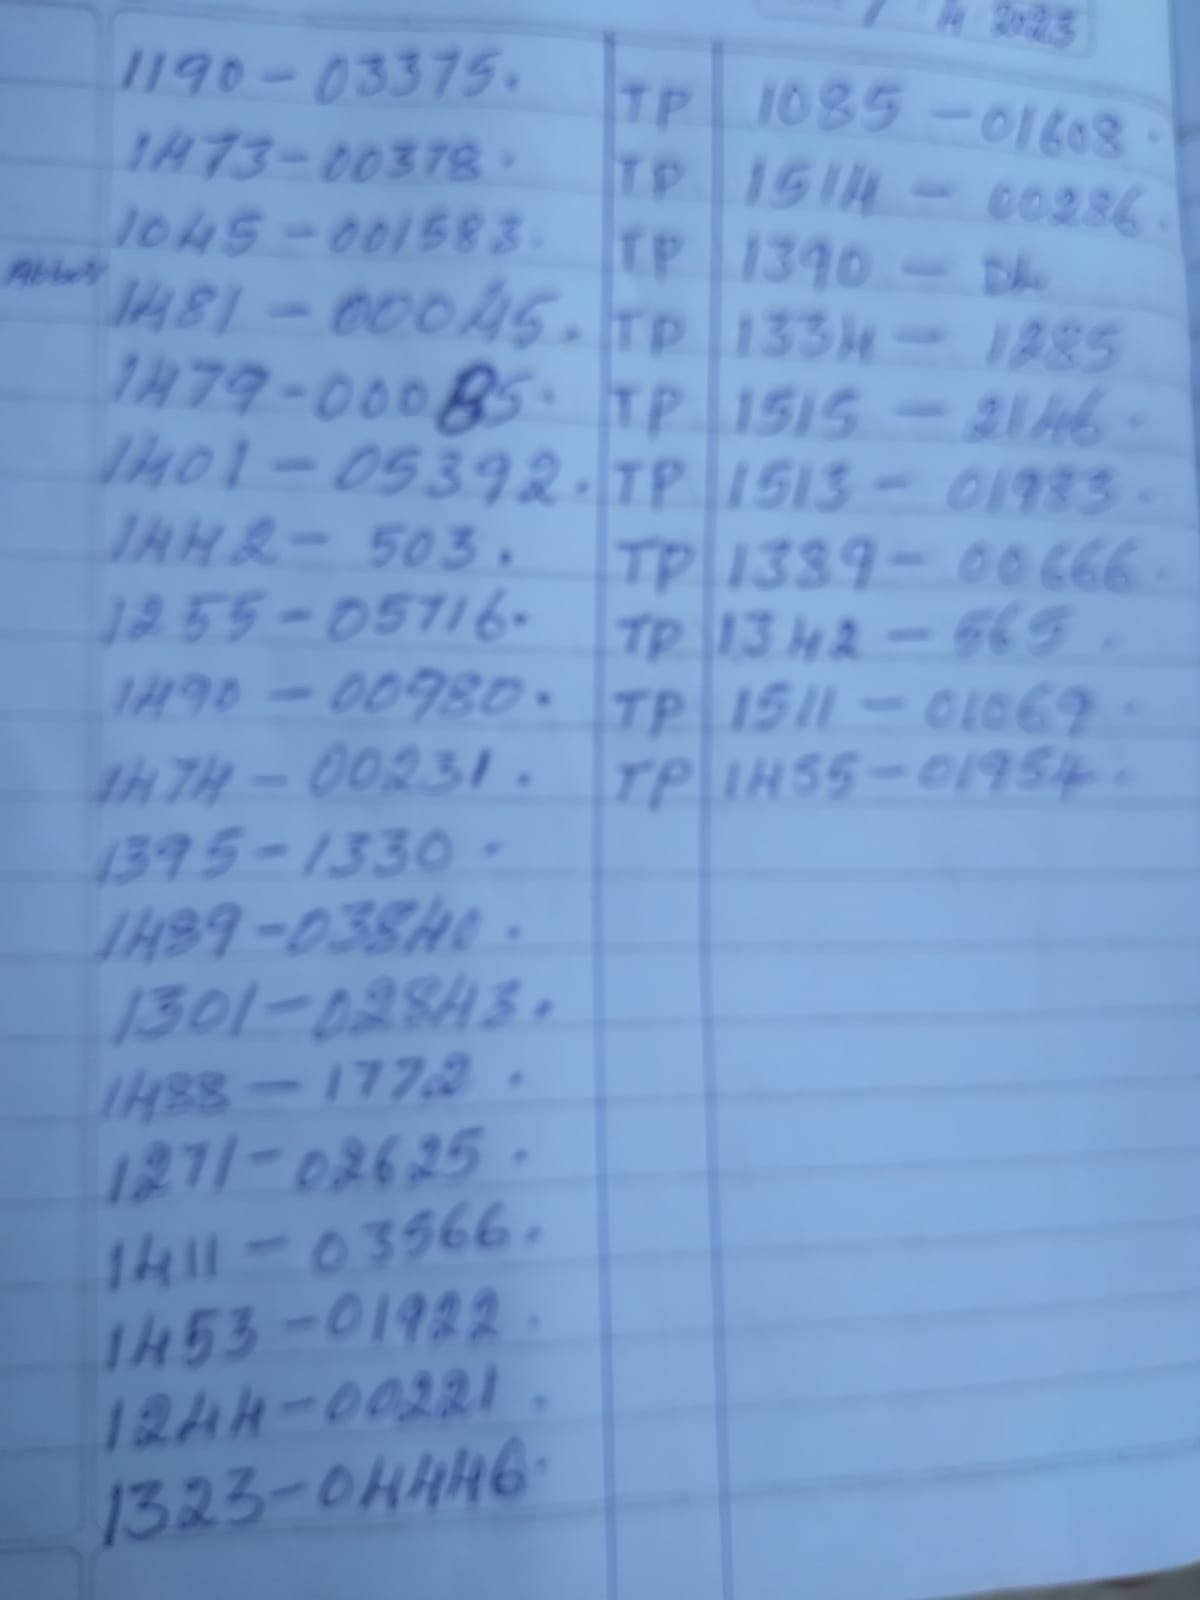 4 2023
1190 - 03375.
1473 - 00378.
1045 - 001583.
1481 - 00045.
1479 - 00085.
1401 - 05392.
1442 - 503.
1255 - 05716.
1490 - 00980.
1474 - 00231.
1395 - 1330.
1489 - 03840.
1301 - 02843.
1488 - 1772.
1271 - 02625.
1411 - 03566.
1453 - 01922.
1244 - 00221.
1323 - 04446.
TP 1085 - 01608.
TP 1514 - 00286.
TP 1390 -
TP 1334 - 1285
TP 1515 - 2146.
TP 1513 - 01983.
TP 1389 - 00666.
TP 1342 - 565.
TP 1511 - 01069.
TP 1455 - 01954.